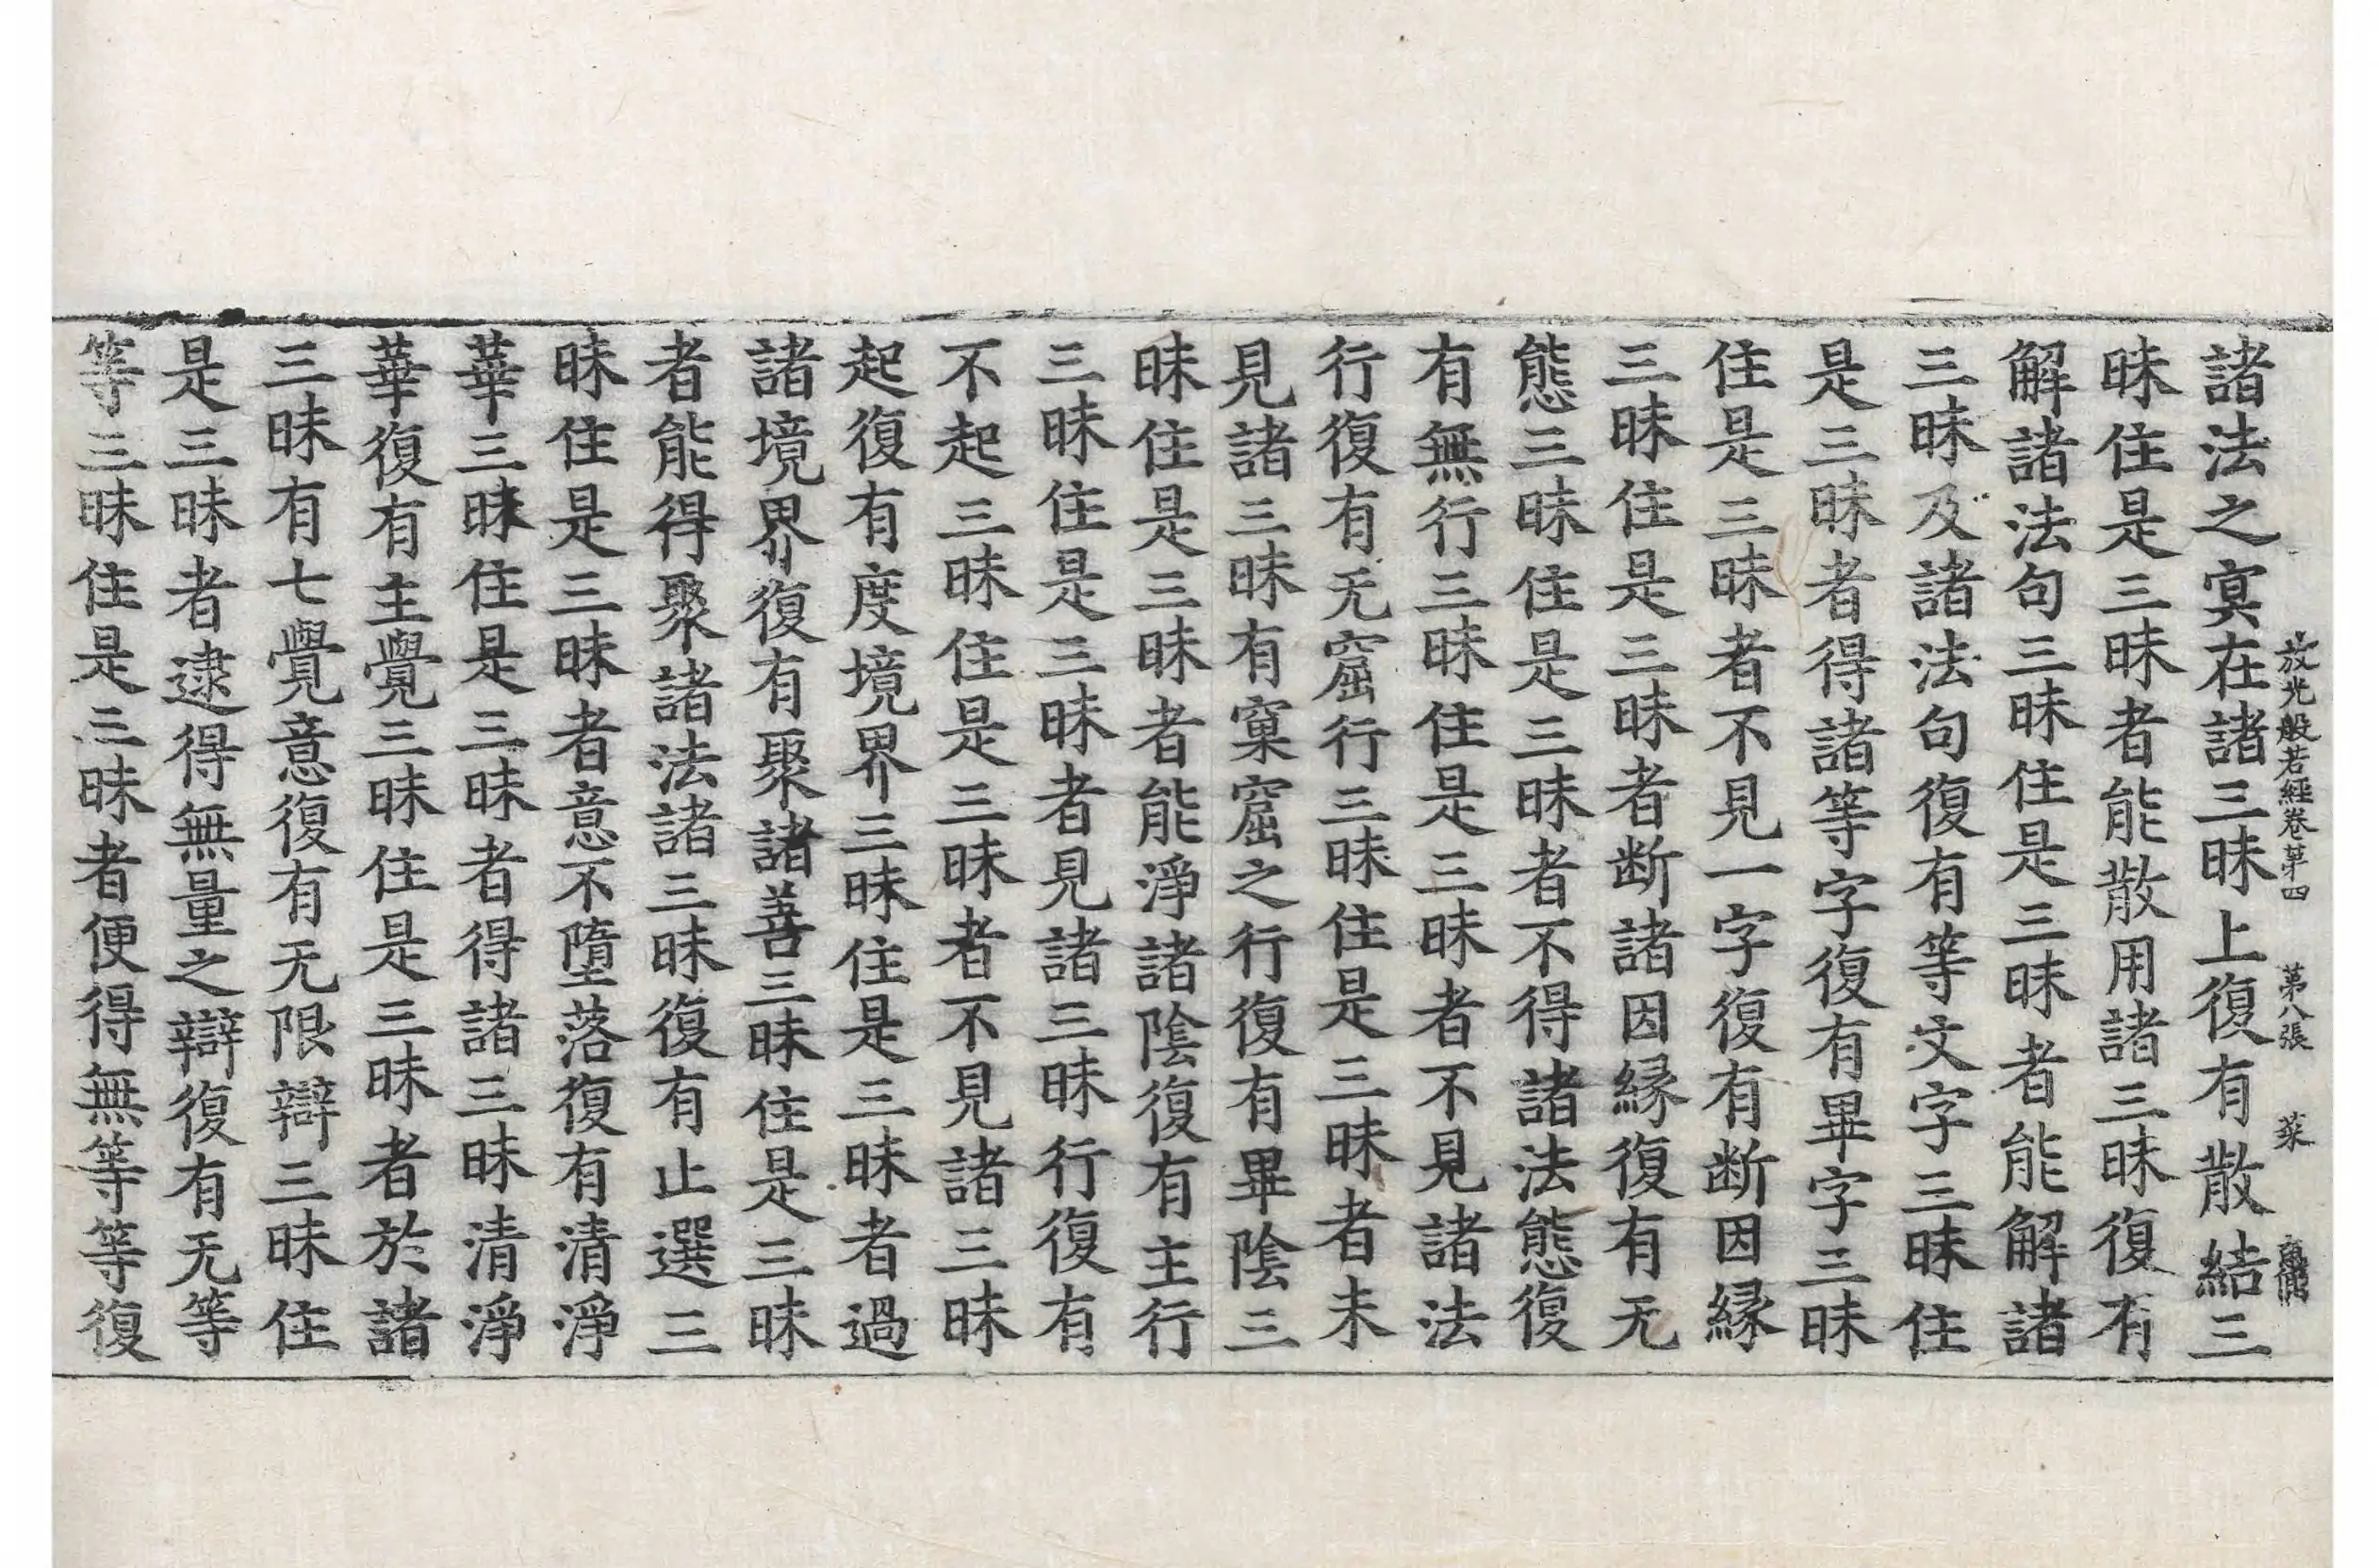 放光般若經卷苐四 苐八張 菜
諸法之㝠在諸三昧上復有散結三
昧住是三昧者能散用諸三昧復有
解諸法句三昧住是三昧者能解諸
三昧及諸法句復有等文字三昧住
是三昧者得諸等字復有畢字三昧
住是三昧者不見一字復有断因縁
三昧住是三昧者断諸因縁復有无
態三昧住是三昧者不得諸法態復
有無行三昧住是三昧者不見諸法
行復有无窟行三昧住是三昧者未
見諸三昧有窠窟之行復有畢陰三
昧住是三昧者能淨諸陰復有主行
三昧住是三昧者見諸三昧行復有
不起三昧住是三昧者不見諸三昧
起復有度境界三昧住是三昧者過
諸境界復有聚諸善三昧住是三昧
者能得聚諸法諸三昧復有止選三
昧住是三昧者意不墮落復有清淨
華三昧住是三昧者得諸三昧清淨
華復有主覺三昧住是三昧者於諸
三昧有七覺意復有无限辯三昧住
是三昧者逮得無量之辯復有无等
等三昧住是三昧者便得無等等復